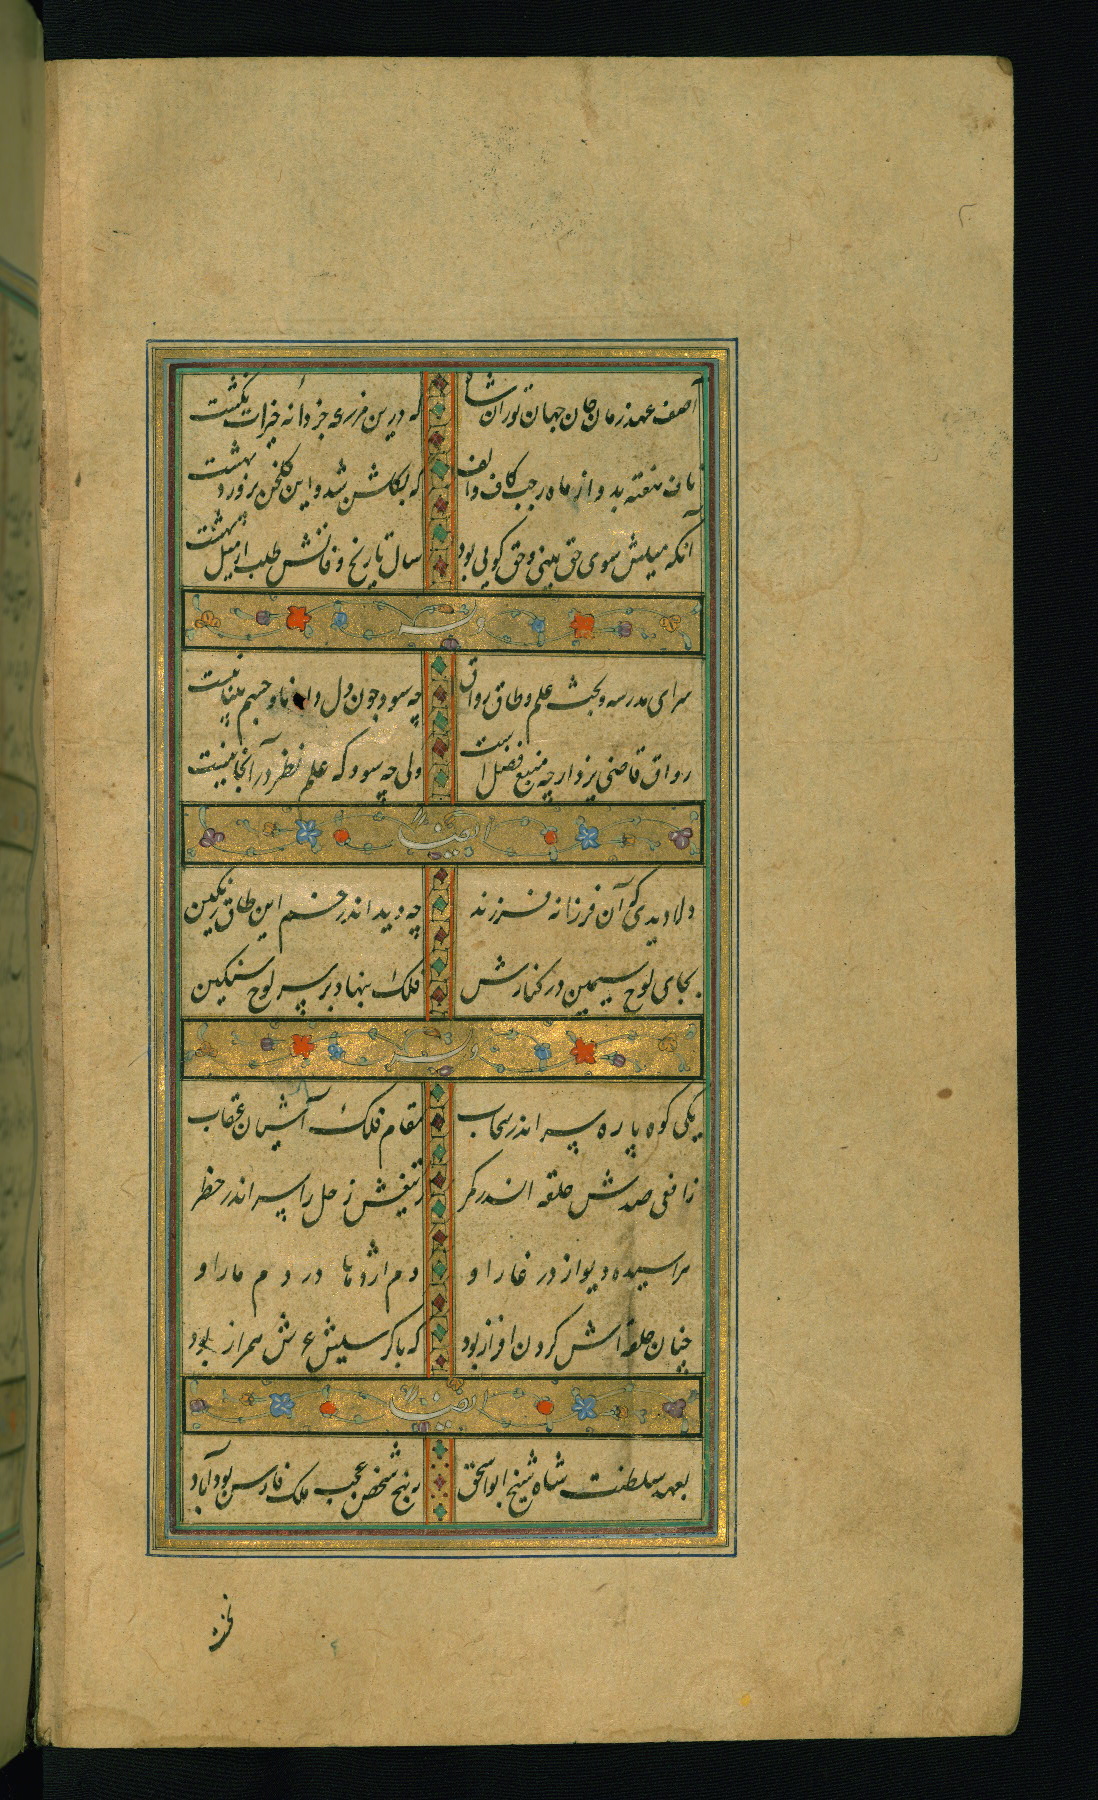 آصف عهد زمان جان جهان تورانشاه
که درین مزرعه جز دانه خیرات نکشت
ناف هفته بد و از ماه رجب کاف و الف
که بگلشن شد و این گلخن پر دود بهشت
آنکه میلش سوی حق بینی و حق گویی بود
سال تاریخ وفاتش طلب از میل بهشت
وله
سرای مدرسه و بحث علم و طاق رواق
چه سود چون دل دانا و چشم بینا نیست
رواق قاضی یزد ارچه منبع فضل است
ولی چه سود که علم نظر در آنجا نیست
ایضا
دلا دیدی که آن فرزانه فرزند
چه دید اندر خم این طاق رنگین
بجای لوح سیمین در کنارش
فلک بنهاد بر سر لوح سنگین
وله
یکی کوه پاره سر اندر سحاب
مقام فلک آشیان عقاب
ز افعی صدش حلقه اندر کمر
ز تیغش زحل را سر اندر خطر
هراسیده دیو از در غار او
دم اژدها در دم مار او
چنان حلقه‌اش گردن افراز بود
که با کرسیش عرش همراز بود
ایضا
بعهد سلطنت شاه شیخ ابو اسحق
به پنج شخص عجب ملک فارس بود آباد
نخست